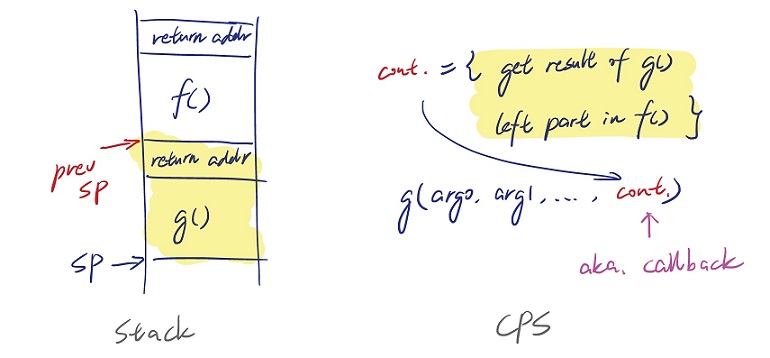 return addr
f()
prev
SP
return addr
g()
SP →
Stack
cont. = { get result of g()
left part in f() }
g(arg0, arg1, ...., cont.)
aka. callback
CPS